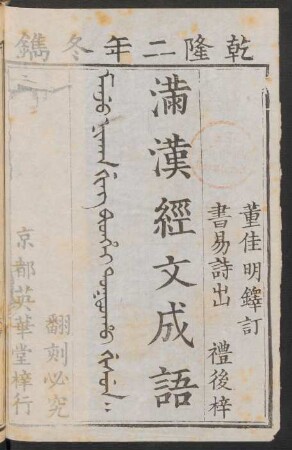 乾隆二年冬鐫
董佳明鐸訂
書易詩出 禮後梓
滿漢經文成語
翻刻必究
京都英華堂梓行